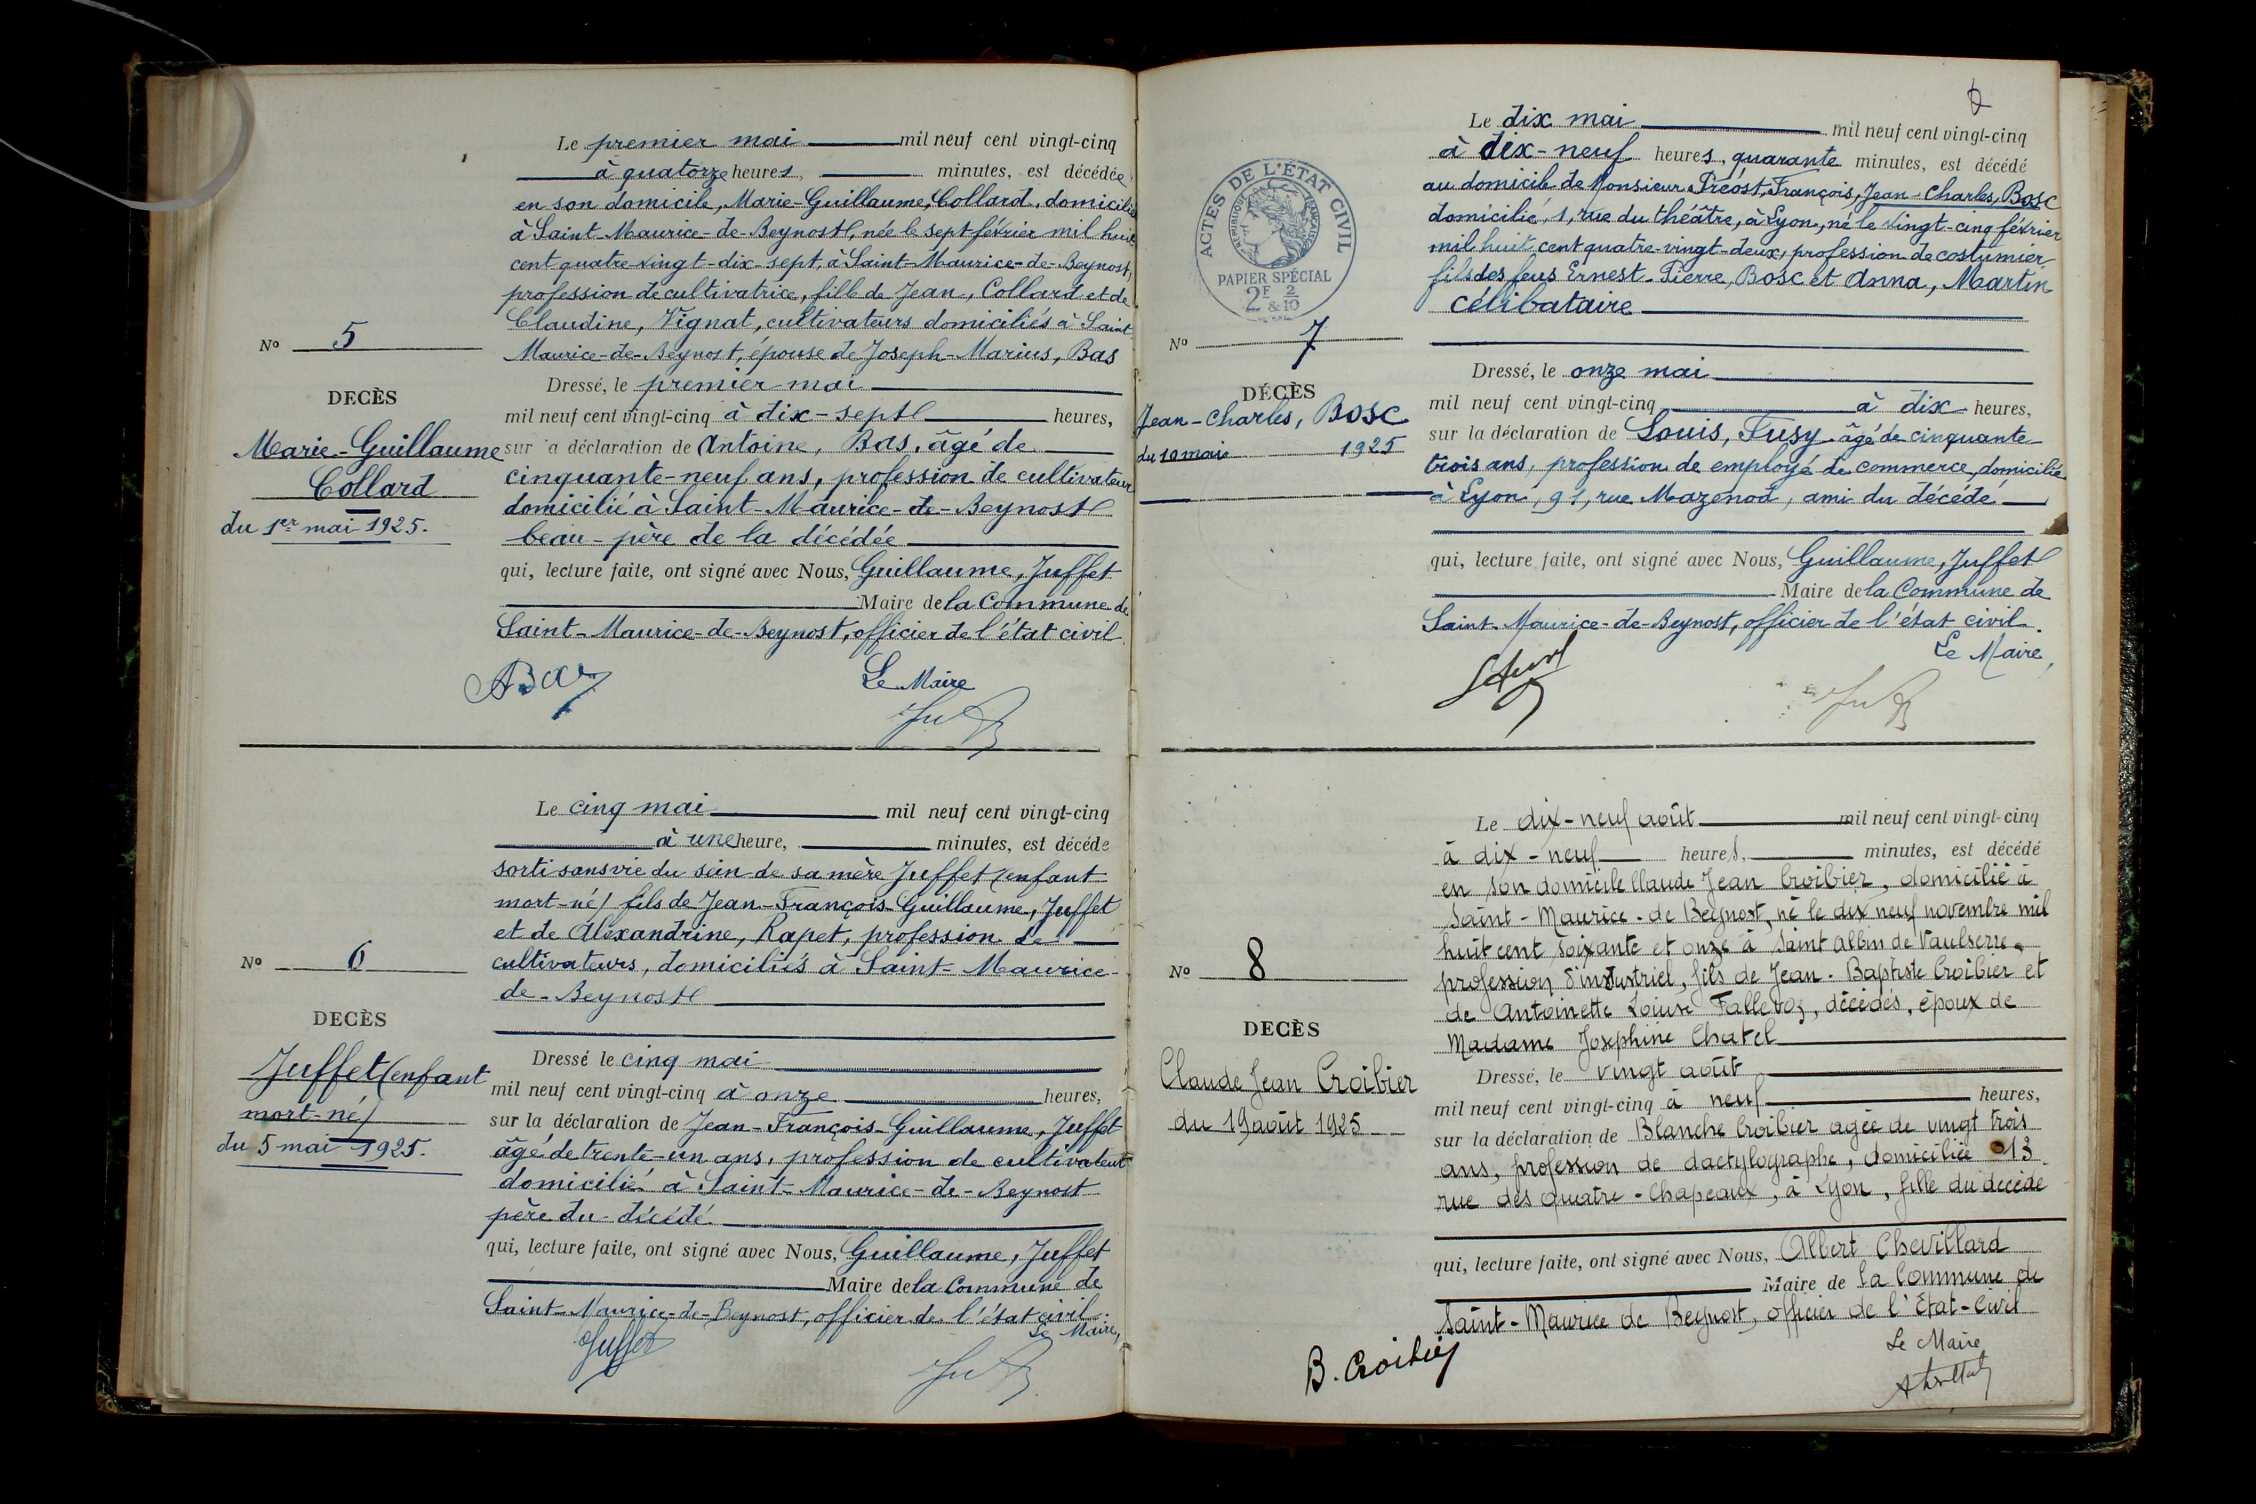 Le premier mai mil neuf cent vingt-cinq
à quatorze heures, minutes, est décédée
en son domicile, Marie-Guillaume, Collard, domiciliée
à Saint-Maurice-de-Beynost, née le sept février mil huit
cent quatre-vingt-dix-sept, à Saint-Maurice-de-Beynost,
profession de cultivatrice, fille de Jean, Collard et de
Claudine, Vignat, cultivateurs domiciliés à Saint
Maurice-de-Beynost, épouse de Joseph-Marius, Bas
Nº 5
DECÈS
Marie-Guillaume
Collard
du 1er mai 1925.
Dressé, le premier mai
mil neuf cent vingt-cinq à dix-sept heures,
sur la déclaration de Antoine, Bas, âgé de
cinquante-neuf ans, profession de cultivateur
domicilié à Saint-Maurice-de-Beynost
beau-père de la décédée
qui, lecture faite, ont signé avec Nous, Guillaume, Juffet
Maire de la Commune de
Saint-Maurice-de-Beynost, officier de l'état civil.
ABas
Le Maire
Le cinq mai mil neuf cent vingt-cinq
à une heure, minutes, est décédé
sorti sans vie du sein de sa mère Juffet (enfant
mort-né) fils de Jean-François-Guillaume, Juffet
et de Alexandrine, Rapet, profession de
cultivateurs, domiciliés à Saint-Maurice-
de-Beynost
Nº 6
DECÈS
Juffet (enfant
mort-né)
du 5 mai 1925.
Dressé le cinq mai
mil neuf cent vingt-cinq à onze heures,
sur la déclaration de Jean-François-Guillaume, Juffet
âgé de trente-un ans, profession de cultivateur
domicilié à Saint-Maurice-de-Beynost
père du décédé
qui, lecture faite, ont signé avec Nous, Guillaume, Juffet
Maire de la Commune de
Saint-Maurice-de-Beynost, officier de l'état civil.
Le Maire,
Juffet
ACTES DE L'ÉTAT CIVIL
RÉPUBLIQUE FRANÇAISE
PAPIER SPÉCIAL
2F & 2/10
Le dix mai mil neuf cent vingt-cinq
à dix-neuf heures, quarante minutes, est décédé
au domicile de Monsieur Préost, François, Jean-Charles, Bosc
domicilié, 1, rue du théâtre, à Lyon, né le vingt-cinq février
mil huit cent quatre-vingt-deux, profession de costumier
fils des feus Ernest-Pierre, Bosc et Anna, Martin
célibataire
Nº 7
DÉCÈS
Jean-Charles, Bosc
du 10 mai 1925
Dressé, le onze mai
mil neuf cent vingt-cinq à dix heures,
sur la déclaration de Louis, Fusy âgé de cinquante
trois ans, profession de employé de commerce, domicilié
à Lyon, 91, rue Mazenod, ami du décédé
qui, lecture faite, ont signé avec Nous, Guillaume, Juffet
Maire de la Commune de
Saint-Maurice-de-Beynost, officier de l'état civil.
Le Maire,
Le dix-neuf août mil neuf cent vingt-cinq
à dix-neuf heures, minutes, est décédé
en son domicile Claude Jean Croibier, domicilié à
Saint-Maurice-de Beynost, né le dix neuf novembre mil
huit cent soixante et onze à Saint Albin de Vaulserre,
profession d'industriel, fils de Jean-Baptiste Croibier et
de Antoinette Louise Fallevoz, décédés, époux de
Madame Joséphine Chatel
Nº 8
DECÈS
Claude Jean Croibier
du 19 août 1925
Dressé, le vingt août
mil neuf cent vingt-cinq à neuf heures,
sur la déclaration de Blanche Croibier agée de vingt trois
ans, profession de dactylographe, domiciliée 13
rue des quatre-Chapeaux, à Lyon, fille du décédé
qui, lecture faite, ont signé avec Nous, Albert Chevillard
Maire de la Commune de
Saint-Maurice de Beynost, officier de l'Etat-Civil
Le Maire
B. Croibier